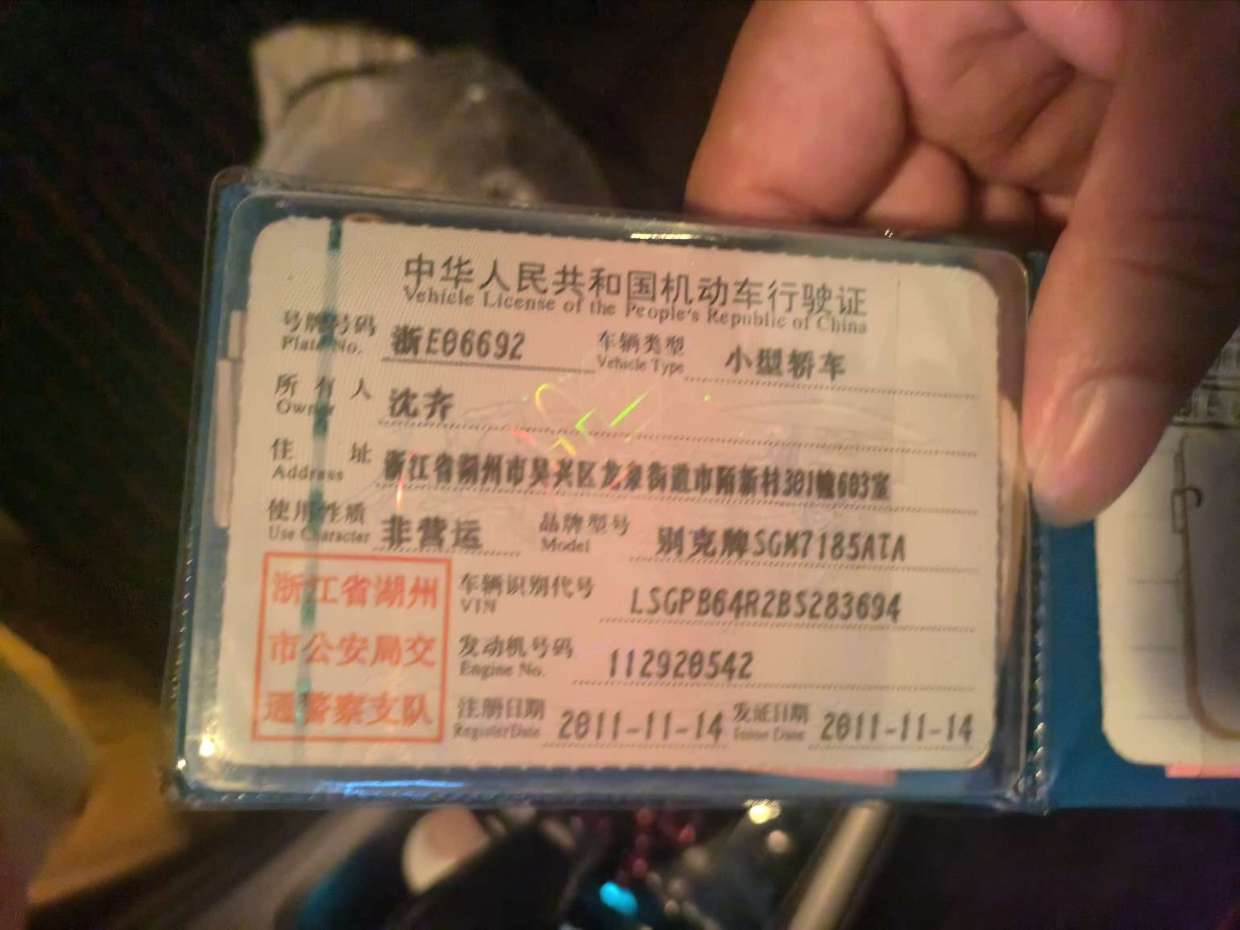 中华人民共和国机动车行驶证
Vehicle License of the People's Republic of China
号牌号码 浙E06692 车辆类型 小型轿车
Plate No. Vehicle Type
所有人 沈齐
Owner
住址 浙江省湖州市吴兴区龙泉街道市陌新村301幢603室
Address
使用性质 非营运 品牌型号 别克牌SGM7185ATA
Use Character Model
浙江省湖州
市公安局交
通警察支队
车辆识别代号 LSGPB64R2BS283694
VIN
发动机号码 112920542
Engine No.
注册日期 2011-11-14 发证日期 2011-11-14
Register Date Issue Date